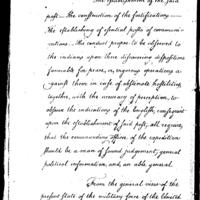 The establishment of the said
post — The construction of the fortifications —
The establishing of spatial posts of communi-
cations. The conduct proper to be observed to
the indians upon their discovering dispositions
favorable for peace, or, vigorous operations a-
gainst them in case of obstinate hostilities
together, with the necessary of perception, to
observe the indications of the English, consequent
upon the establishment of said post, all require,
that the commanding officer of the expedition
should be a man of sound judgement, general
political information, and an able general
From the general view of the
present State of the military force of the United